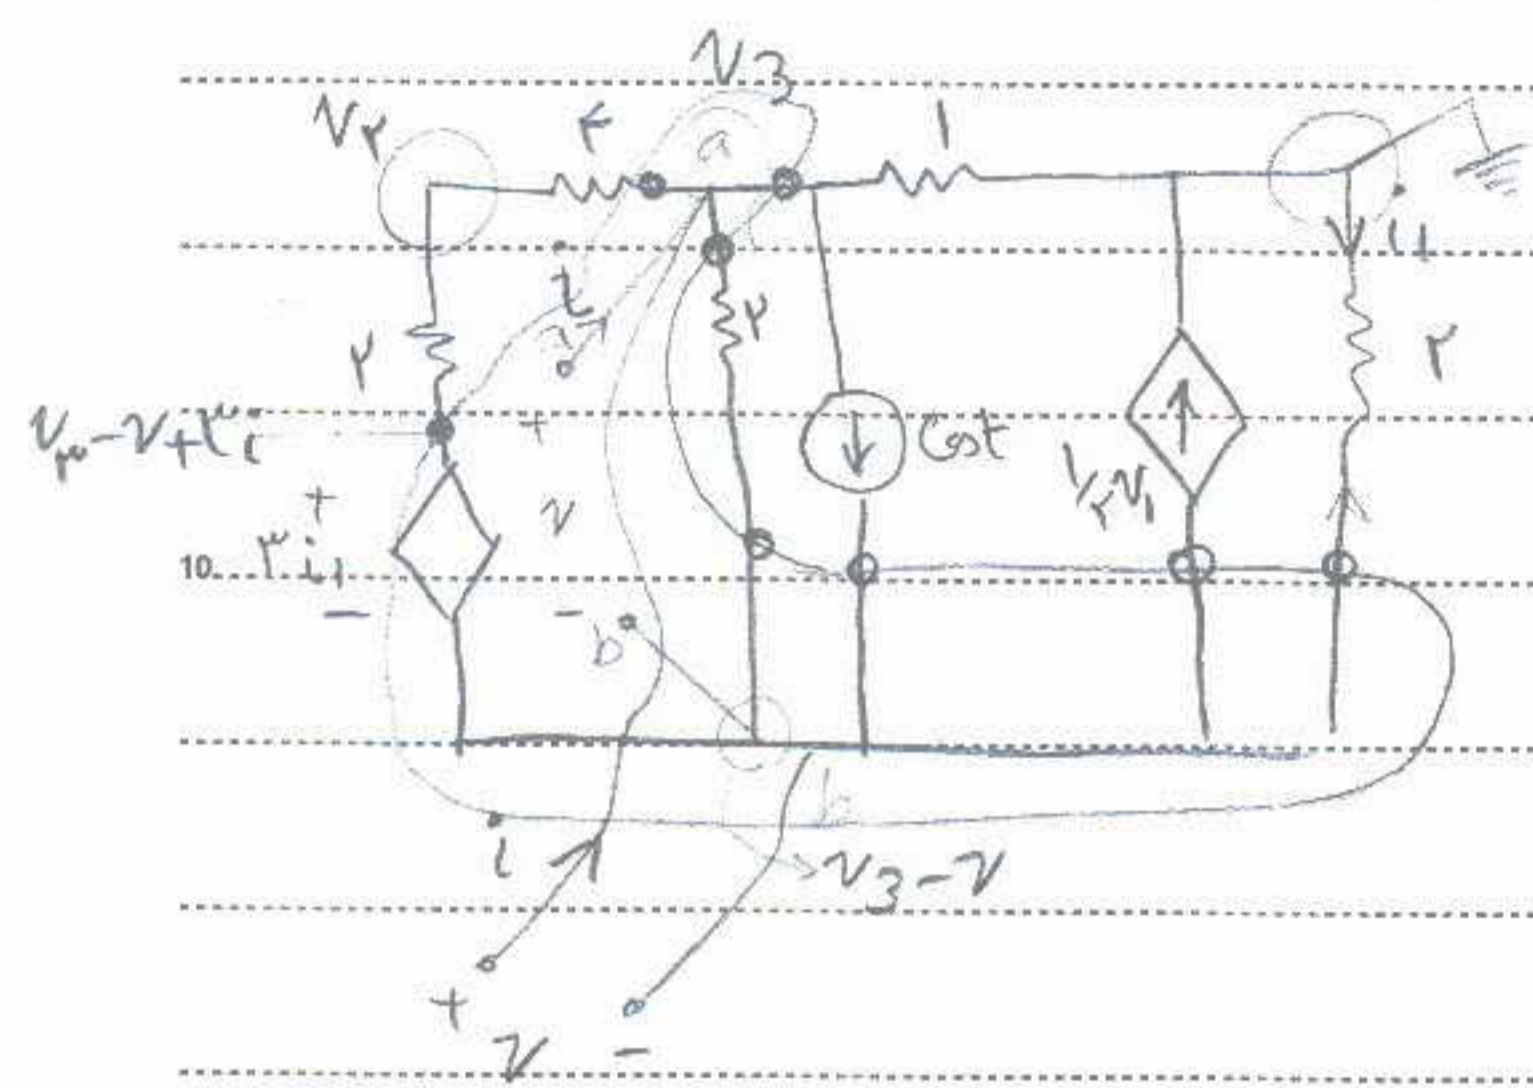 V3
V۲
۴
a
1
i
a
i1
۲
۲
۲
V۳-V+۳i
+
+
Cost
1/۲ V1
V
۳i1
10
-
-
b
b
i
V3-V
+
V
-